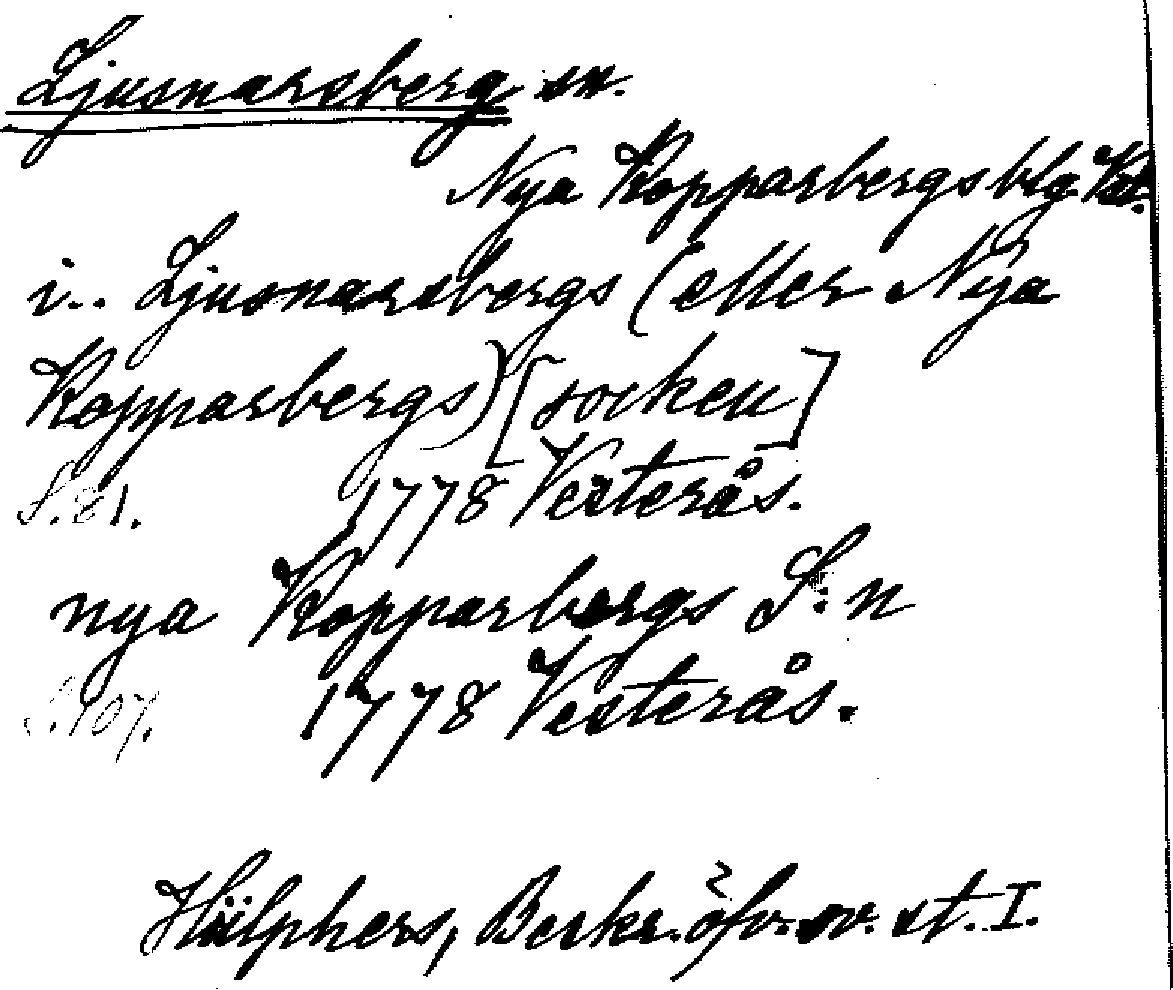 Ljusnarsberg sn.
Nya Kopparbergs blg. Vstm.
i.. Ljusnarsbergs (eller Nya
Kopparbergs) [socken]
S. 81. 1778 Vesterås.
nya Kopparbergs S:n
S. 107. 1778 Vesterås.
Hülphers, Beskr. öfv. sv. st. I.